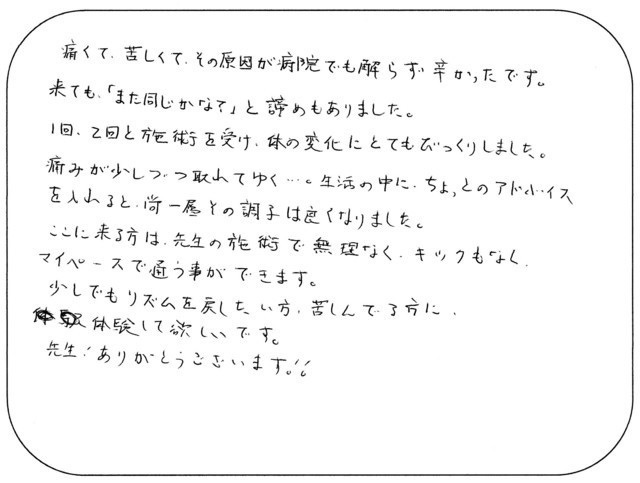 痛くて、苦しくて、その原因が病院でも解らず辛かったです。
来ても、「また同じかなて」と諦めもありました。
1回、2回と施術を受け、体の変化にとてもびっくりしました。
痛みが少しづつ取れてゆく…。生活の中に、ちょっとのアドバイス
を入れると、尚一層その調子は良くなりました。
ここに来る方は、先生の施術で無理なく、キックもなく、
マイペースで通う事ができます。
少しでもリズムを戻したい方、苦しんでる方に、
体験して欲しいです。
先生!ありがとうございます!!